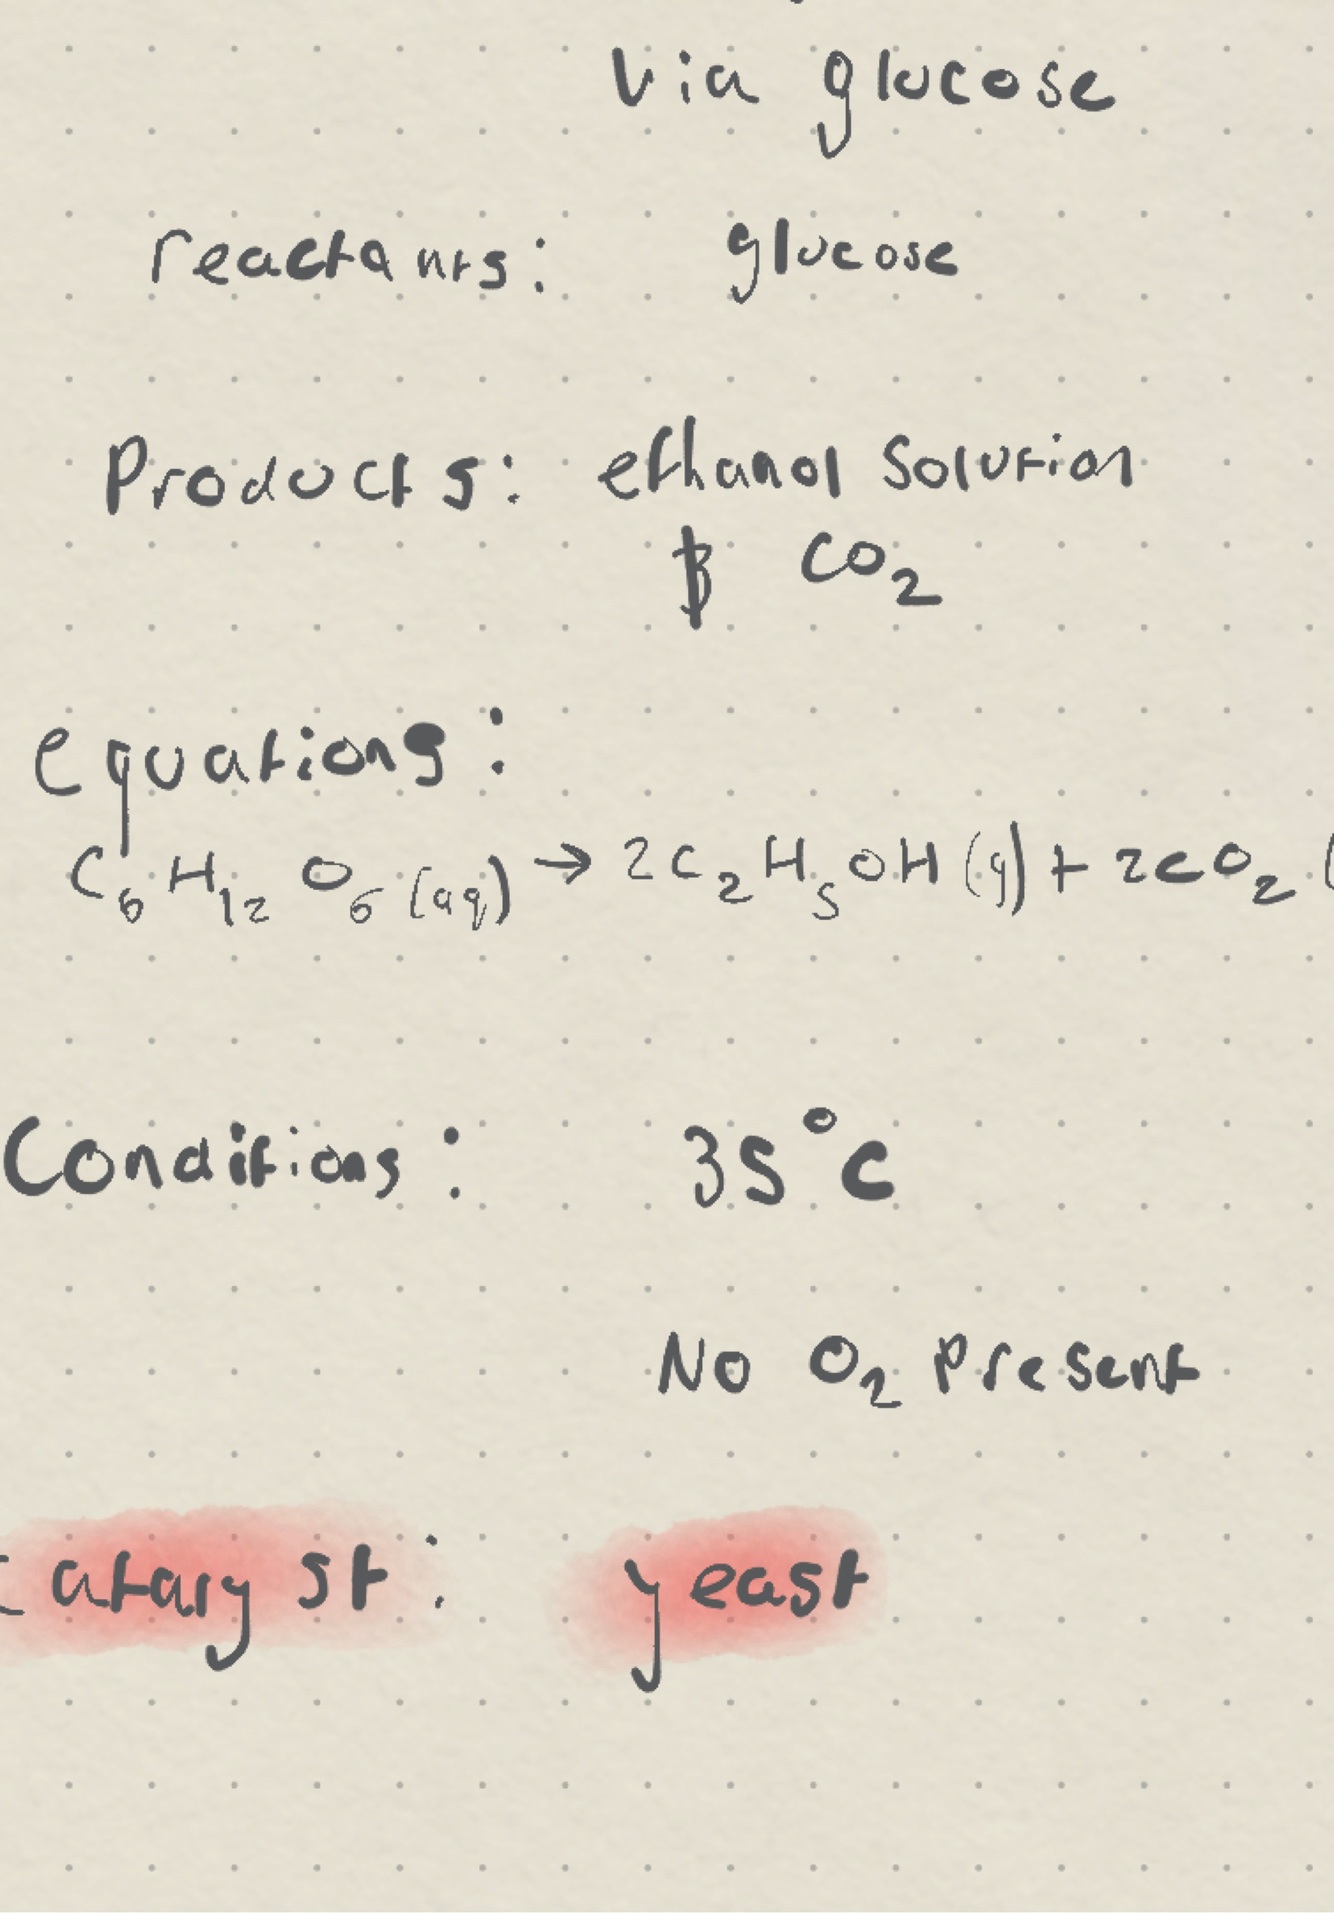 via glucose
reactants: glucose
Products: ethanol solution
& CO₂
equations:
C₆H₁₂O₆(aq) → 2C₂H₅OH(g) + 2CO₂(
Conditions: 35°C
No O₂ present
catalyst: yeast